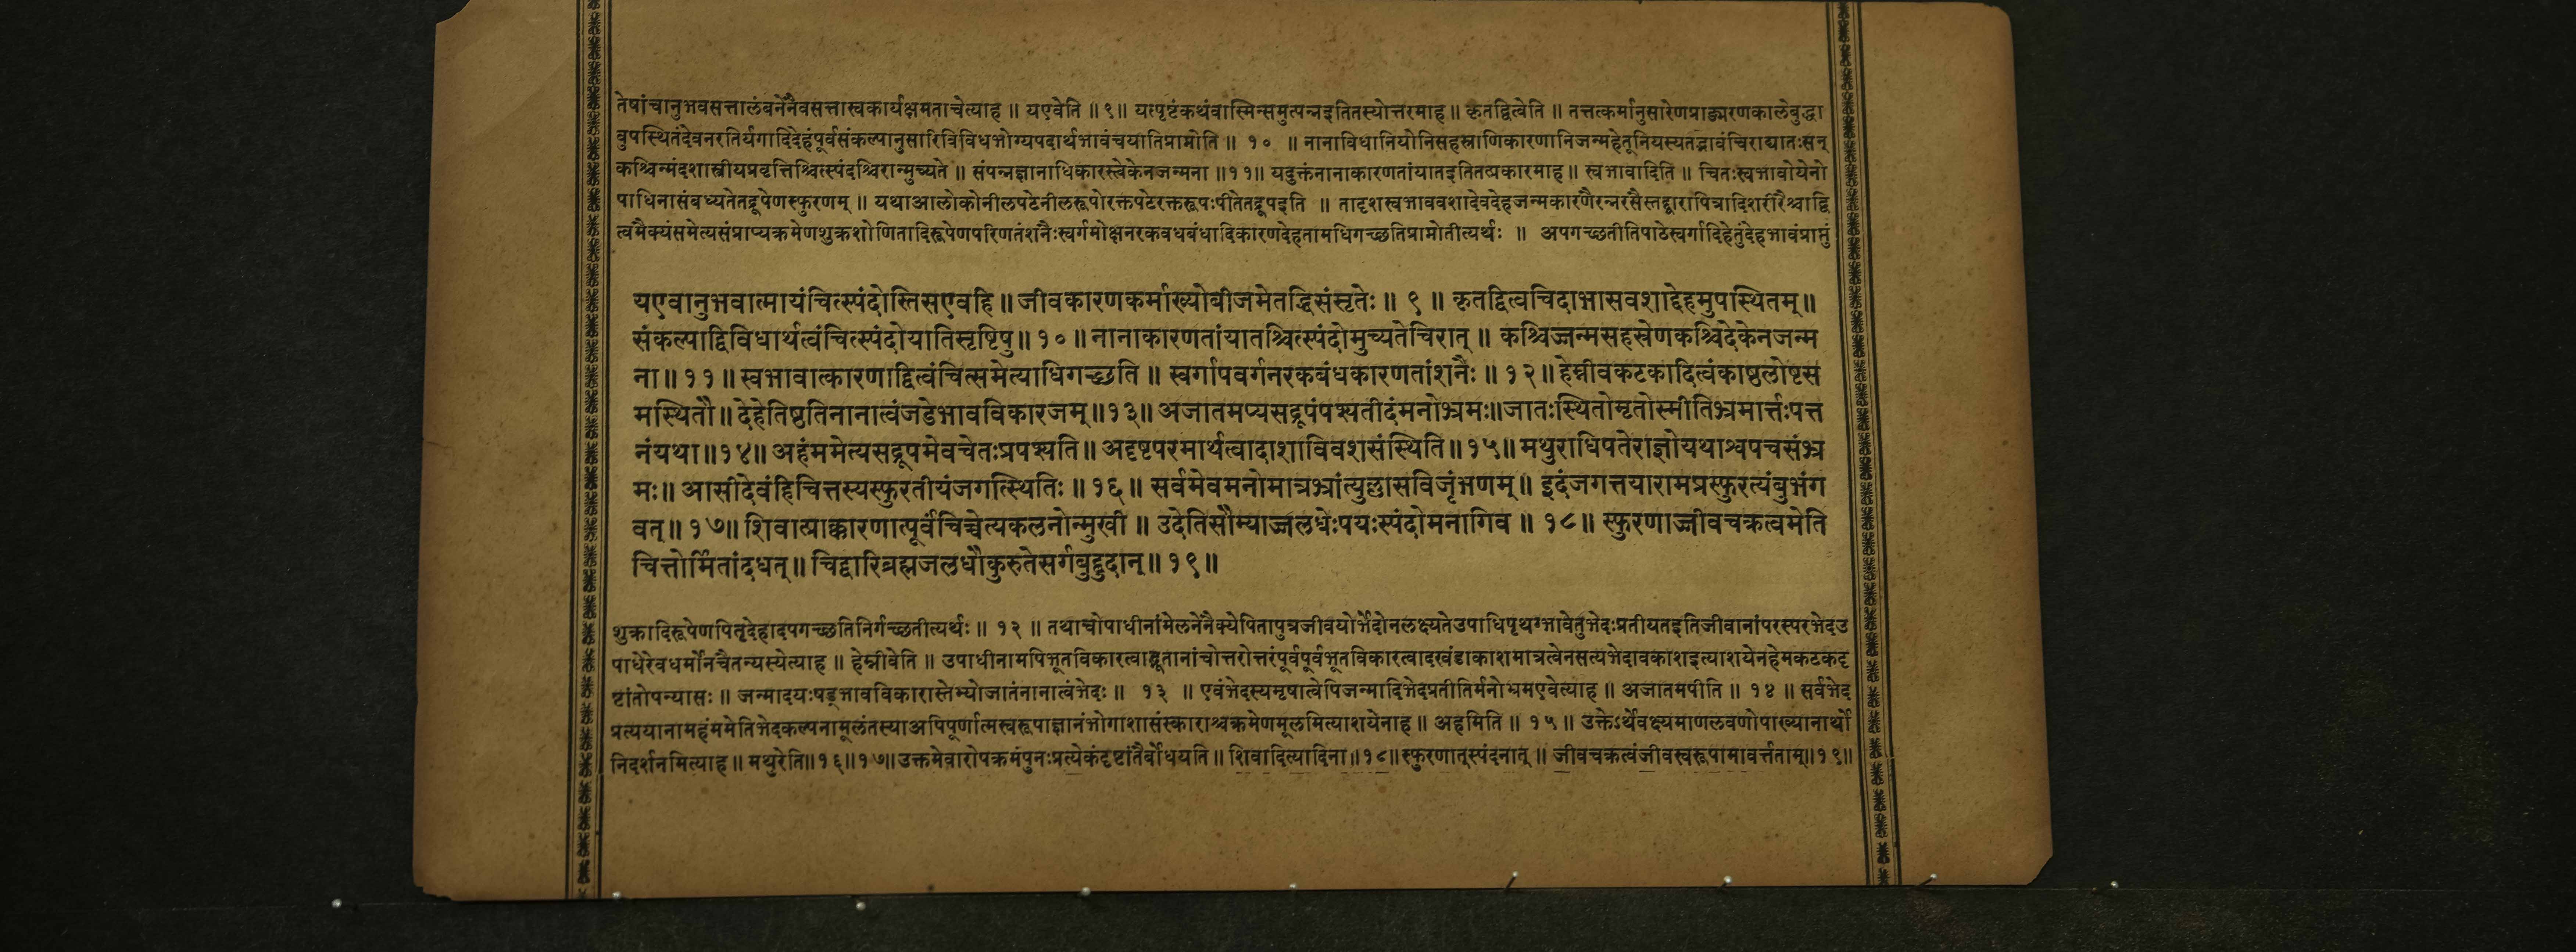 तेषांचानुभवसत्तालंबनेनैवसत्तास्वकार्यक्षमताचेत्याह ॥ यएवेति ॥ ९॥ यत्पृष्टंकथंवास्मिन्समुत्पन्नइतितस्योत्तरमाह ॥ कृतद्वित्वेति ॥ तत्तत्कर्मानुसारेणप्राङ्मरणकालेबुद्धा
वुपस्थितंदेवनरतिर्यगादिदेहंपूर्वसंकल्पानुसारिविविधभोग्यपदार्थभावंचयातिप्राप्नोति ॥ १० ॥ नानाविधानियोनिसहस्राणिकारणानिजन्महेतूनियस्यतद्भावंचिराद्यातःसन्
कश्चिन्मंदशास्त्रीयप्रवृत्तिश्चित्स्पंदश्चिरान्मुच्यते ॥ संपन्नज्ञानाधिकारस्त्वेकेनजन्मना ॥११॥ यदुक्तंनानाकारणतांयातइतितत्प्रकारमाह ॥ स्वभावादिति ॥ चितःस्वभावोयेनो
पाधिनासंबध्यतेतद्रूपेणस्फुरणम् ॥ यथाआलोकोनीलपटेनीलरूपोरक्तपटेरक्तरूपःपीतेतद्रूपइति ॥ तादृशस्वभाववशादेवदेहजन्मकारणैरन्नरसैस्तद्द्वारापित्रादिशरीरैश्चाद्वि
त्वमैक्यंसमेत्यसंप्राप्यक्रमेणशुक्रशोणितादिरूपेणपरिणतंशनैःस्वर्गमोक्षनरकवधबंधादिकारणदेहतामधिगच्छतिप्राप्नोतीत्यर्थः ॥ अपगच्छतीतिपाठेस्वर्गादिहेतुंदेहभावंप्राप्तुं
यएवानुभवात्मायंचित्स्पंदोस्तिसएवहि ॥ जीवकारणकर्माख्योबीजमेतद्धिसंसृतेः ॥ ९ ॥ कृतद्वित्वचिदाभासवशाद्देहमुपस्थितम् ॥
संकल्पाद्विविधार्थत्वंचित्स्पंदोयातिसृष्टिषु ॥ १० ॥ नानाकारणतांयातश्चित्स्पंदोमुच्यतेचिरात् ॥ कश्चिज्जन्मसहस्रेणकश्चिदेकेनजन्म
ना ॥ ११ ॥ स्वभावात्कारणाद्वित्वंचित्समेत्याधिगच्छति ॥ स्वर्गापवर्गनरकबंधकारणतांशनैः ॥ १२ ॥ हेम्नीवकटकादित्वंकाष्ठलोष्टस
मस्थितौ ॥ देहेतिष्ठतिनानात्वंजडेभावविकारजम् ॥१३॥ अजातमप्यसद्रूपंपश्यतीदंमनोभ्रमः॥जातःस्थितोमृतोस्मीतिभ्रमार्त्तःपत्त
नंयथा ॥१४॥ अहंममेत्यसद्रूपमेवचेतःप्रपश्यति ॥ अदृष्टपरमार्थत्वादाशाविवशसंस्थिति ॥१५॥ मथुराधिपतेराज्ञोयथाश्वपचसंभ्र
मः॥ आसीदेवंहिचित्तस्यस्फुरतीयंजगत्स्थितिः ॥ १६॥ सर्वमेवमनोमात्रभ्रांत्युल्लासविजृंभणम् ॥ इदंजगत्तयारामप्रस्फुरत्यंबुभंग
वत् ॥ १७॥ शिवात्प्राक्कारणात्पूर्वंचिच्चेत्यकलनोन्मुखी ॥ उदेतिसौम्याज्जलधेःपयःस्पंदोमनागिव ॥ १८॥ स्फुरणाज्जीवचक्रत्वमेति
चित्तोर्मितांदधत् ॥ चिद्वारिब्रह्मजलधौकुरुतेसर्गबुद्बुदान् ॥ १९॥
शुक्रादिरूपेणपितृदेहादपगच्छतिनिर्गच्छतीत्यर्थः ॥ १२ ॥ तथाचोपाधीनांमेलनेनैक्येपितापुत्रजीवयोर्भेदोनलक्ष्यतेउपाधिपृथग्भावेतुभेदःप्रतीयतइतिजीवानांपरस्परभेदउ
पाधेरेवधर्मोनचैतन्यस्येत्याह ॥ हेम्नीवेति ॥ उपाधीनामपिभूतविकारत्वाद्भूतानांचोत्तरोत्तरंपूर्वपूर्वभूतविकारत्वादखंडाकाशमात्रत्वेनसत्यभेदावकाशइत्याशयेनहेमकटकदृ
ष्टांतोपन्यासः ॥ जन्मादयःषड्भावविकारास्तेभ्योजातंनानात्वंभेदः ॥ १३ ॥ एवंभेदस्यमृषात्वेपिजन्मादिभेदप्रतीतिर्मनोभ्रमएवेत्याह ॥ अजातमपीति ॥ १४ ॥ सर्वभेद
प्रत्ययानामहंममेतिभेदकल्पनामूलंतस्याअपिपूर्णात्मस्वरूपाज्ञानंभोगाशासंस्काराश्चक्रमेणमूलमित्याशयेनाह ॥ अहमिति ॥ १५ ॥ उक्तेऽर्थेवक्ष्यमाणलवणोपाख्यानार्थो
निदर्शनमित्याह ॥ मथुरेति॥१६॥१७॥उक्तमेवारोपक्रमंपुनःप्रत्येकंदृष्टांतैर्बोधयति ॥ शिवादित्यादिना॥१८॥स्फुरणात्स्पंदनात् ॥ जीवचक्रत्वंजीवस्वरूपामावर्त्तताम्॥१९॥